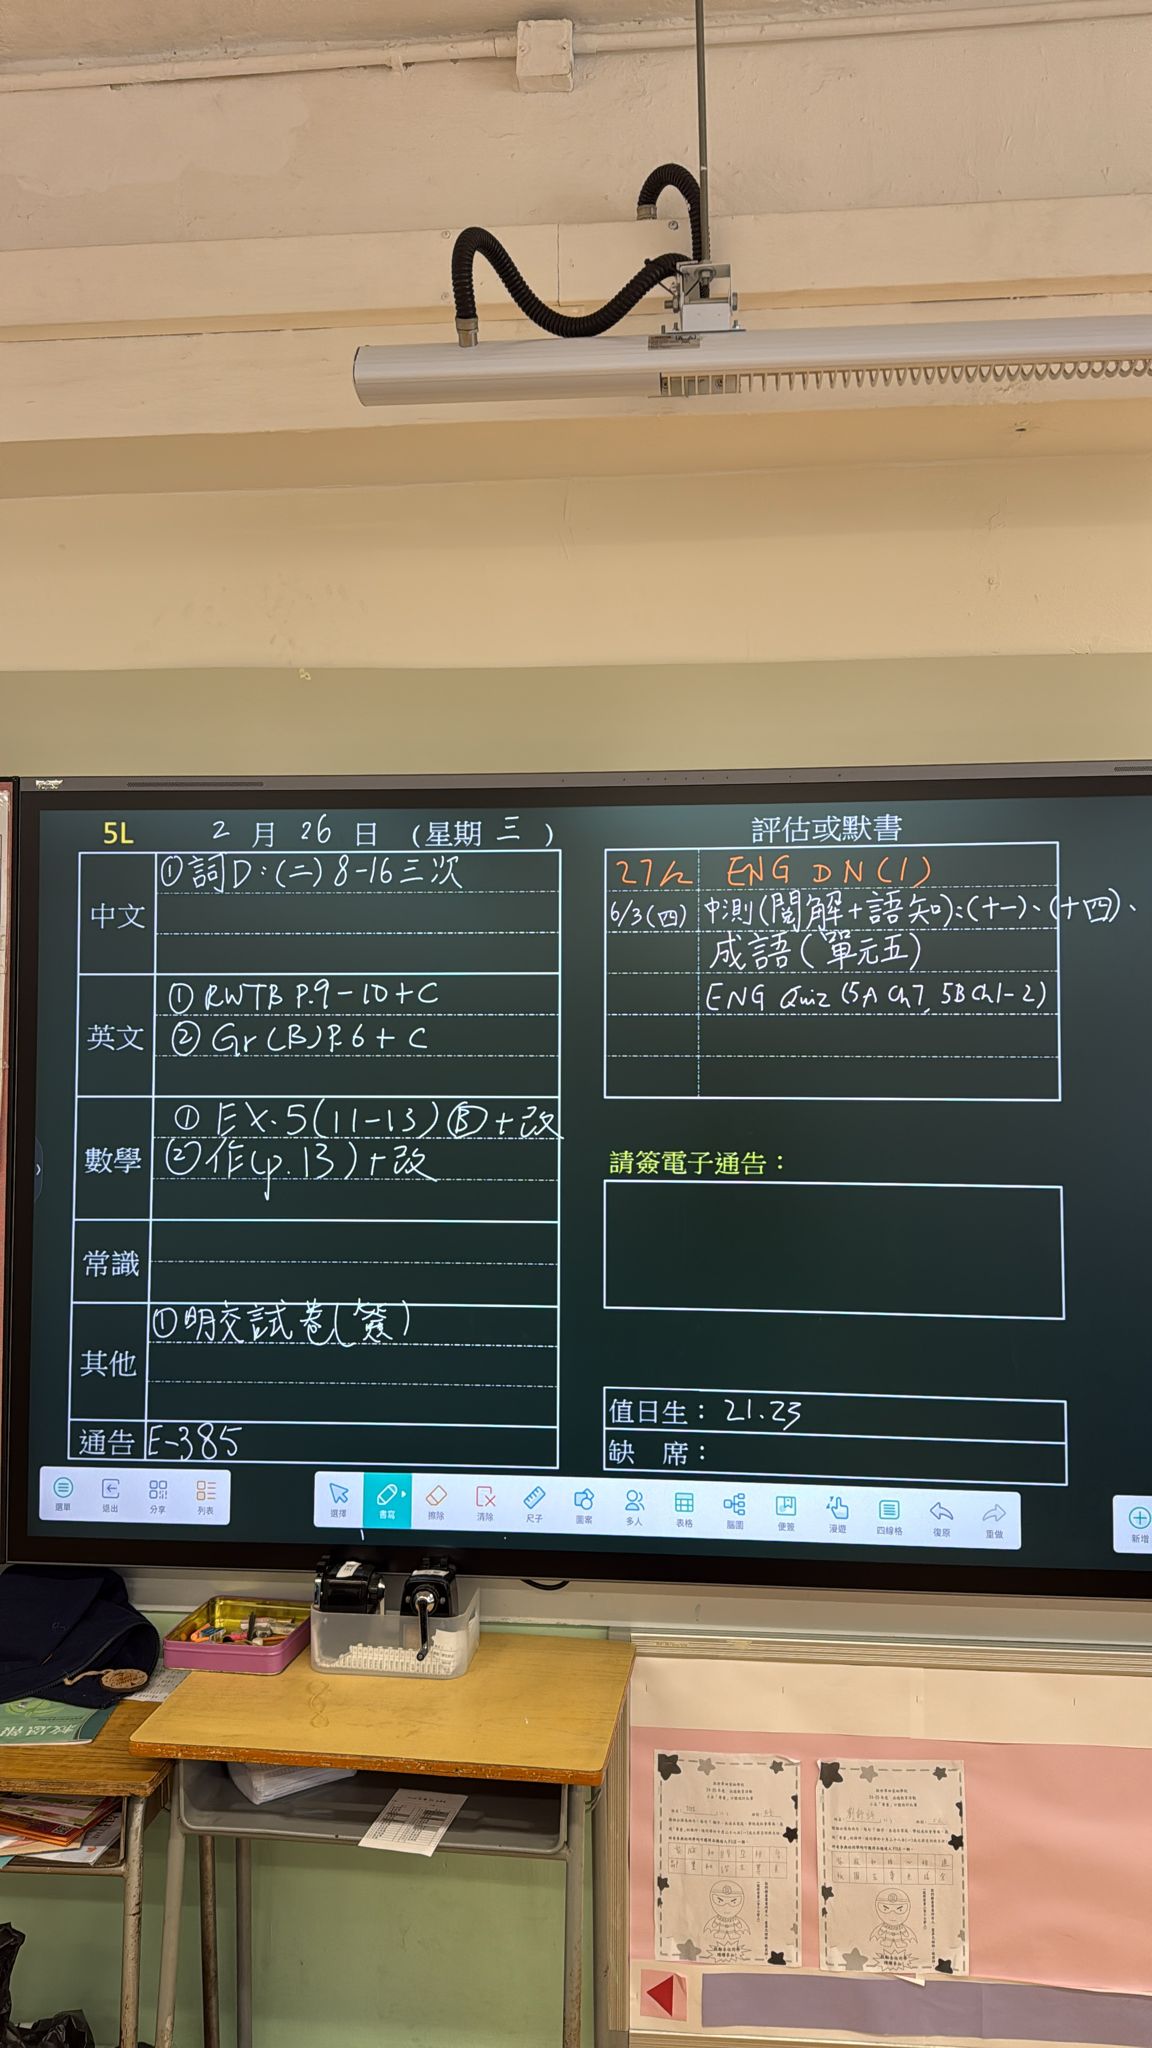 5L 2月26日 (星期三)
中文
①詞D:(二)8-16三次
英文
①RWTB P.9-10+C
②Gr(B)P.6+C
數學
①EX.5(11-13)Ⓑ+改
②作(p.13)+改
常識
其他
①明交試卷(簽)
通告 E-385
評估或默書
ENG DN(1)
6/3(四) 中測(閱解+語知):(十一)、(十四)、
成語(單元五)
ENG Quiz (5A Ch7, 5B Ch1-2)
請簽電子通告:
值日生: 21.23
缺 席:
選單 退出 分享 列表
選擇 書寫 擦除 清除 尺子 圖案 多人 表格 腦圖 便簽 漫遊 四線格 復原 重做
新增